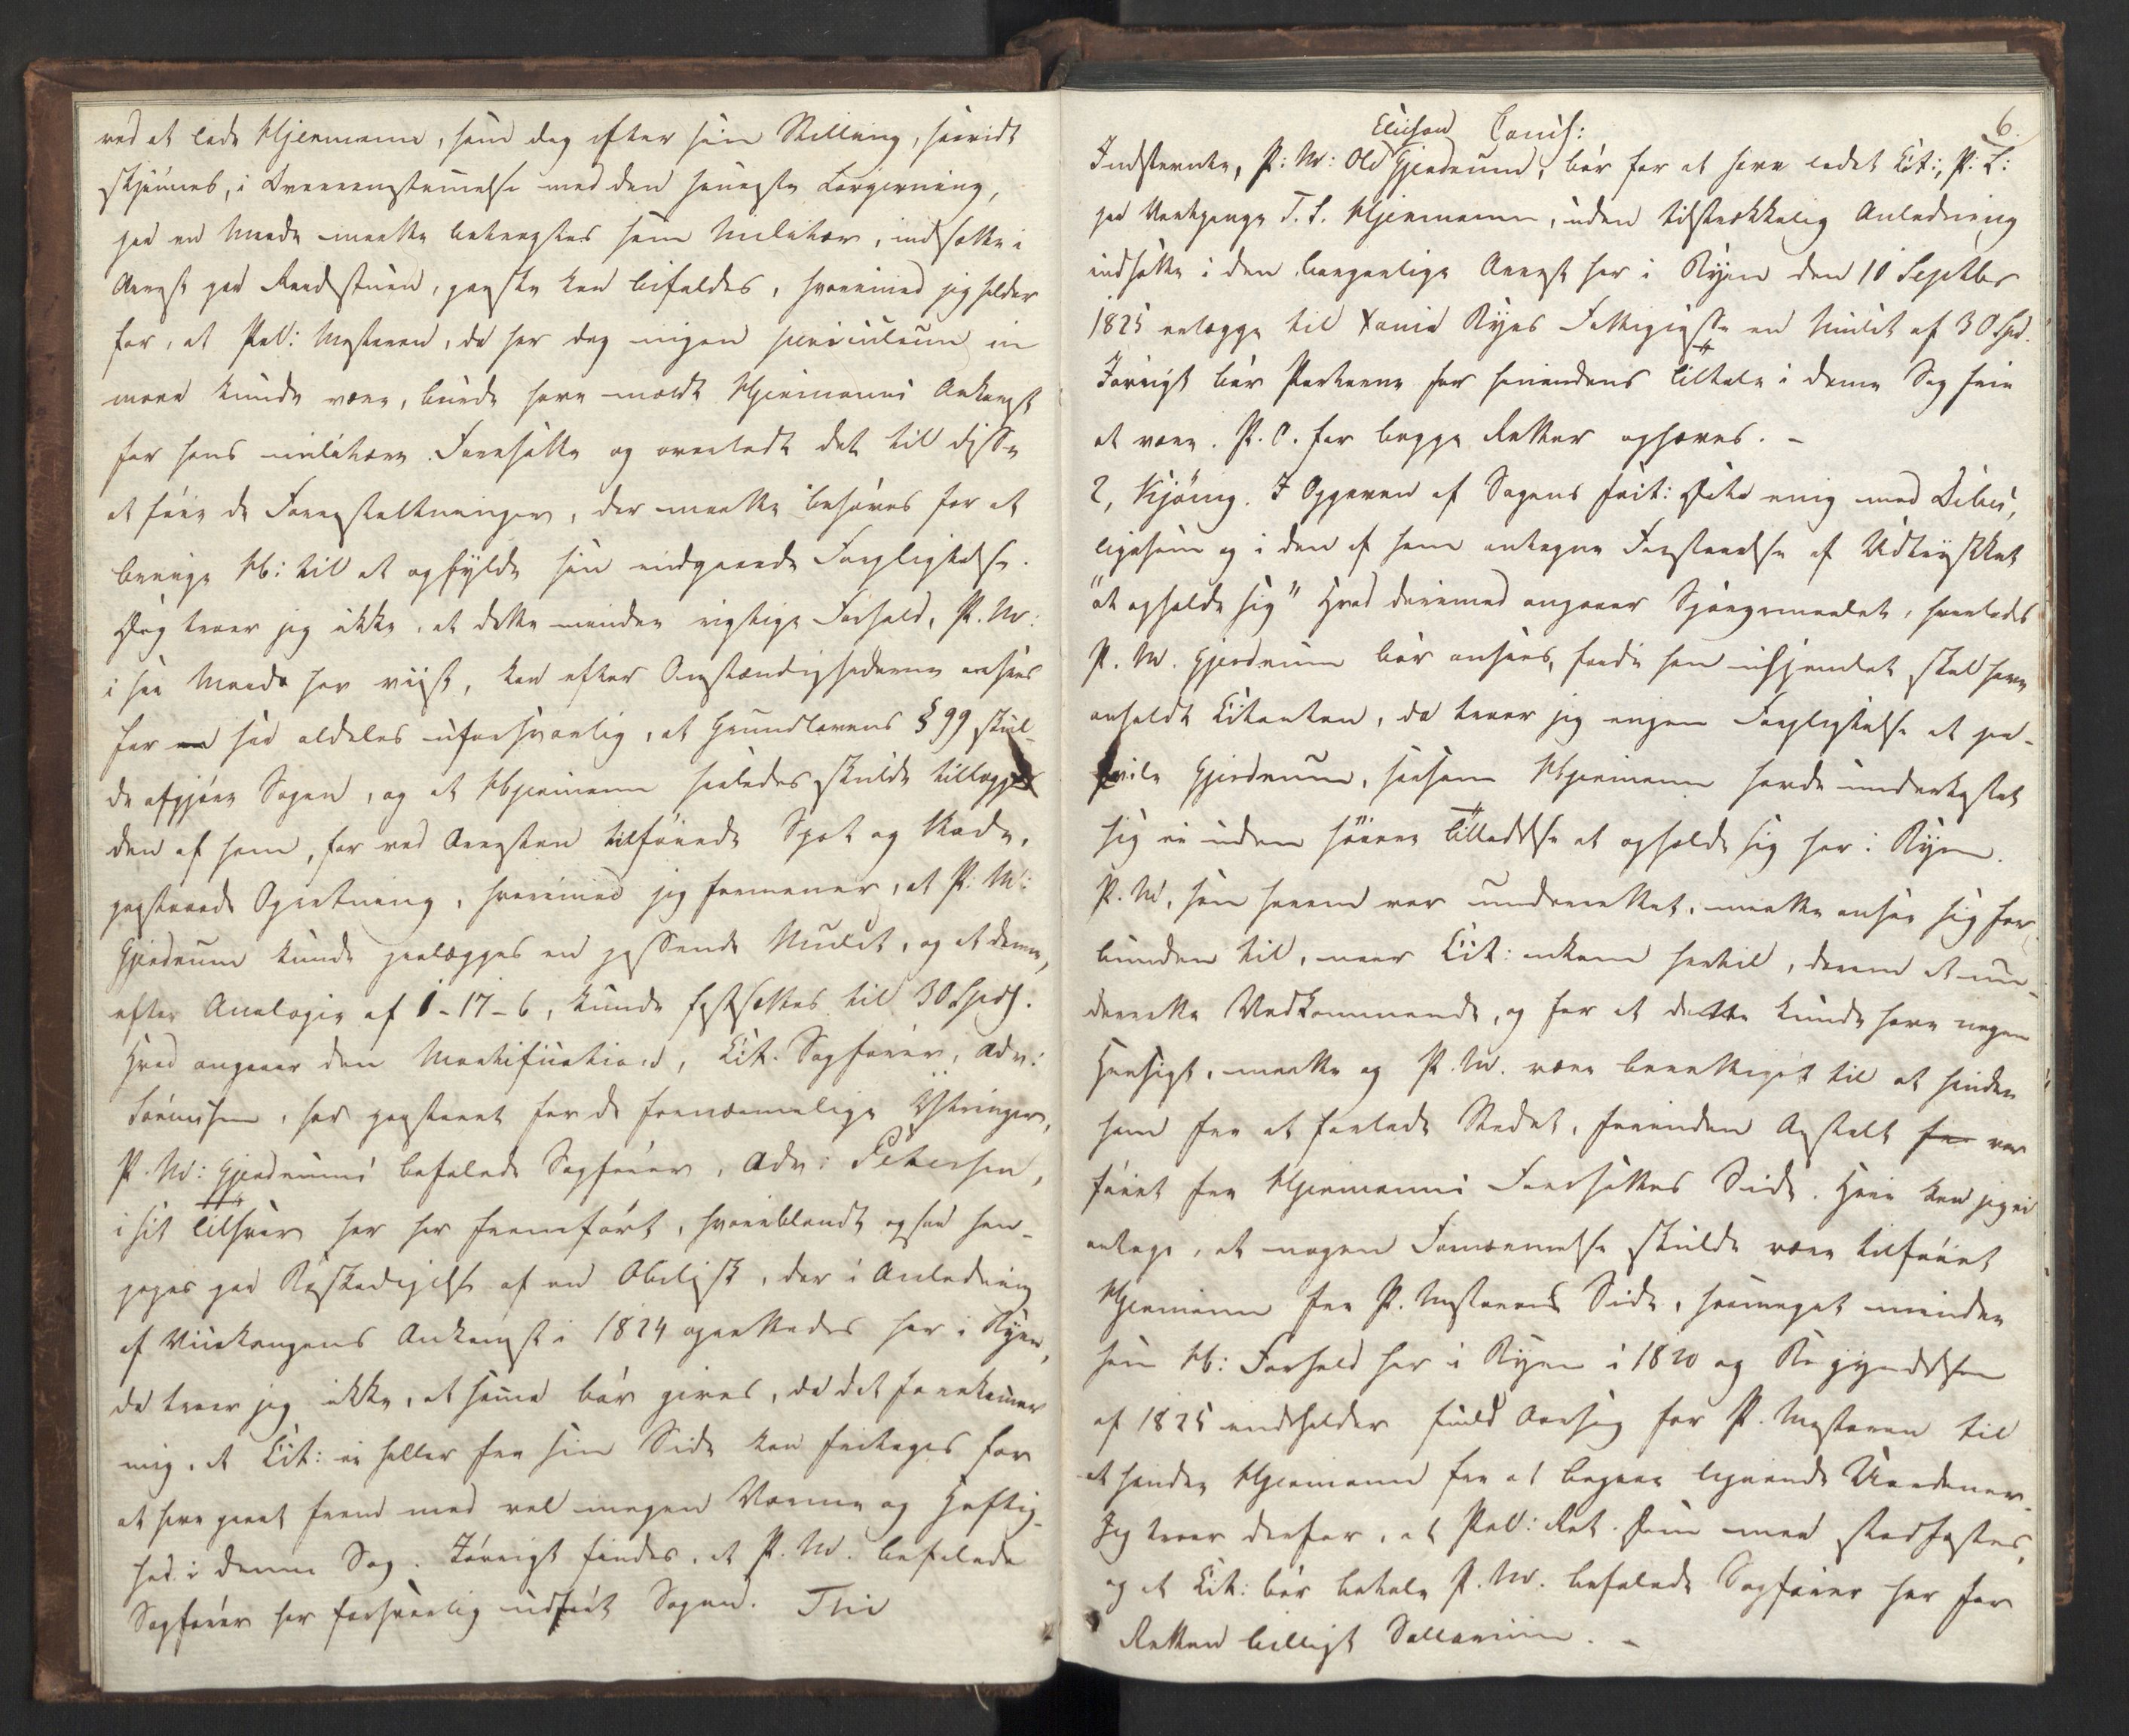 ved at lade Hjermann, som dog efter sin Stilling, saavidt
skjønnes, i Overeensstemmelse med den seneste Lovgivning,
paa en Maade maatte betragtes som Militær, indsætte i
Arrest paa Raadstuen, ganske kan bifaldes, hvorimod jeg holder
for, at Pol: Mesteren, da her dog ingen periculum in
mora kunde være, burde have meldt Hjermanns Ankomst
for hans militære Foresatte og overladt det til disse
at føie de Foranstaltninger, der maatte behøves for at
bevæge Hb: til at opfylde sin indgaaede Forpligtelse.
Dog troer jeg ikke, at dette mindre rigtige Forhold, P. M:
i saa Maade har viist, kan efter Omstændighederne ansees
for saa aldeles uforsvarlig, at Grundlovens § 99 skul-
de afgjøre Sagen, og at Hjermann saaledes skulde tillægges
den af ham, for ved Arresten tilføiede Spot og Skade,
paastaaede Opretning, hvorimod jeg formener, at P: M:
Gjerdrum kunde paalægges en passende Mulct, og at denne,
efter Analogie af 1-17-6, kunde fastsættes til 30 Spdl.
Hvad angaaer den Mortification, Cit. Sagfører, Adv:
Sørensen, har paastaaet for de fornærmelige Yttringer,
P. M: Gjerdrums befalede Sagfører, Adv: Petersen,
i sit Tilsvar har her fremført, hvoriblandt ogsaa hen-
peges paa Beskadigelse af en Obelisk, der i Anledning
af Vicekongens Ankomst i 1824 oprettedes her i Byen,
da troer jeg ikke, at samme bør gives, da det forekommer
mig, at Cit: ei heller fra sin Side kan fritages for
at have gaaet frem med vel megen Varme og Heftig-
hed i denne Sag. Iøvrigt findes, at P. M. befalede
Sagfører har forsvarlig udført Sagen. Thi
6.
Elieson Concl:
Indstevnte, P: M: Old Gjerdrum, bør for at have ladet Cit:, P. L:
paa Vartpenge T. S. Hjermann, uden tilstrækkelig Anledning
indsætte i den borgerlige Arrest her i Byen den 10 Septbr
1825 erlægge til Xania Byes Fattigcasse en Mulct af 30 Spd.
Iøvrigt bør Parterne for hinandens Tiltale i denne Sag frie
at være. P. O. for begge Retter ophæves. –
2, Kjönig. I Opgaven af Sagens Facit: Data enig med Tribu,
ligesom og i den af ham antagne Forstaaelse af Udtrykket
"at opholde sig" Hvad derimod angaaer Spørgsmaalet, hvorledes
P. M. Gjerdrum bør ansees, fordi han uhjemlet skal have
anholdt Citanten, da troer jeg ingen Forpligtelse at paa-
hvile Gjerdrum, saasom Hjermann havde underkastet
sig ei uden høiere Tilladelse at opholde sig her i Byen.
P. M, som herom var underrettet, maatte ansee sig for
bunden til, naar Cit: ankom hertil, derom at un-
derrette Vedkommende, og for at dette kunde have nogen
Hensigt, maatte og P. M. være berettiget til at hindre
ham fra at forlade Stedet, forinden Anstalt for var
føiet fra Hjermanns Foresattes Side. Heri kan jeg ei
antage, at nogen Fornærmelse skulde være tilføiet
Hjermann fra P. Mesterens Side, saameget mindre
som Hb: Forhold her i Byen i 1820 og Begyndelsen
af 1825 indeholder fuld Aarsag for P. Mesteren til
at hindre Hjermann fra at begaae lignende Uordener.
Jeg troer derfor, at Pol: Ret. Dom maa stadfæstes,
og at Cit: bør betale P. M. befalede Sagfører her for
Retten billigt Sallarium. –